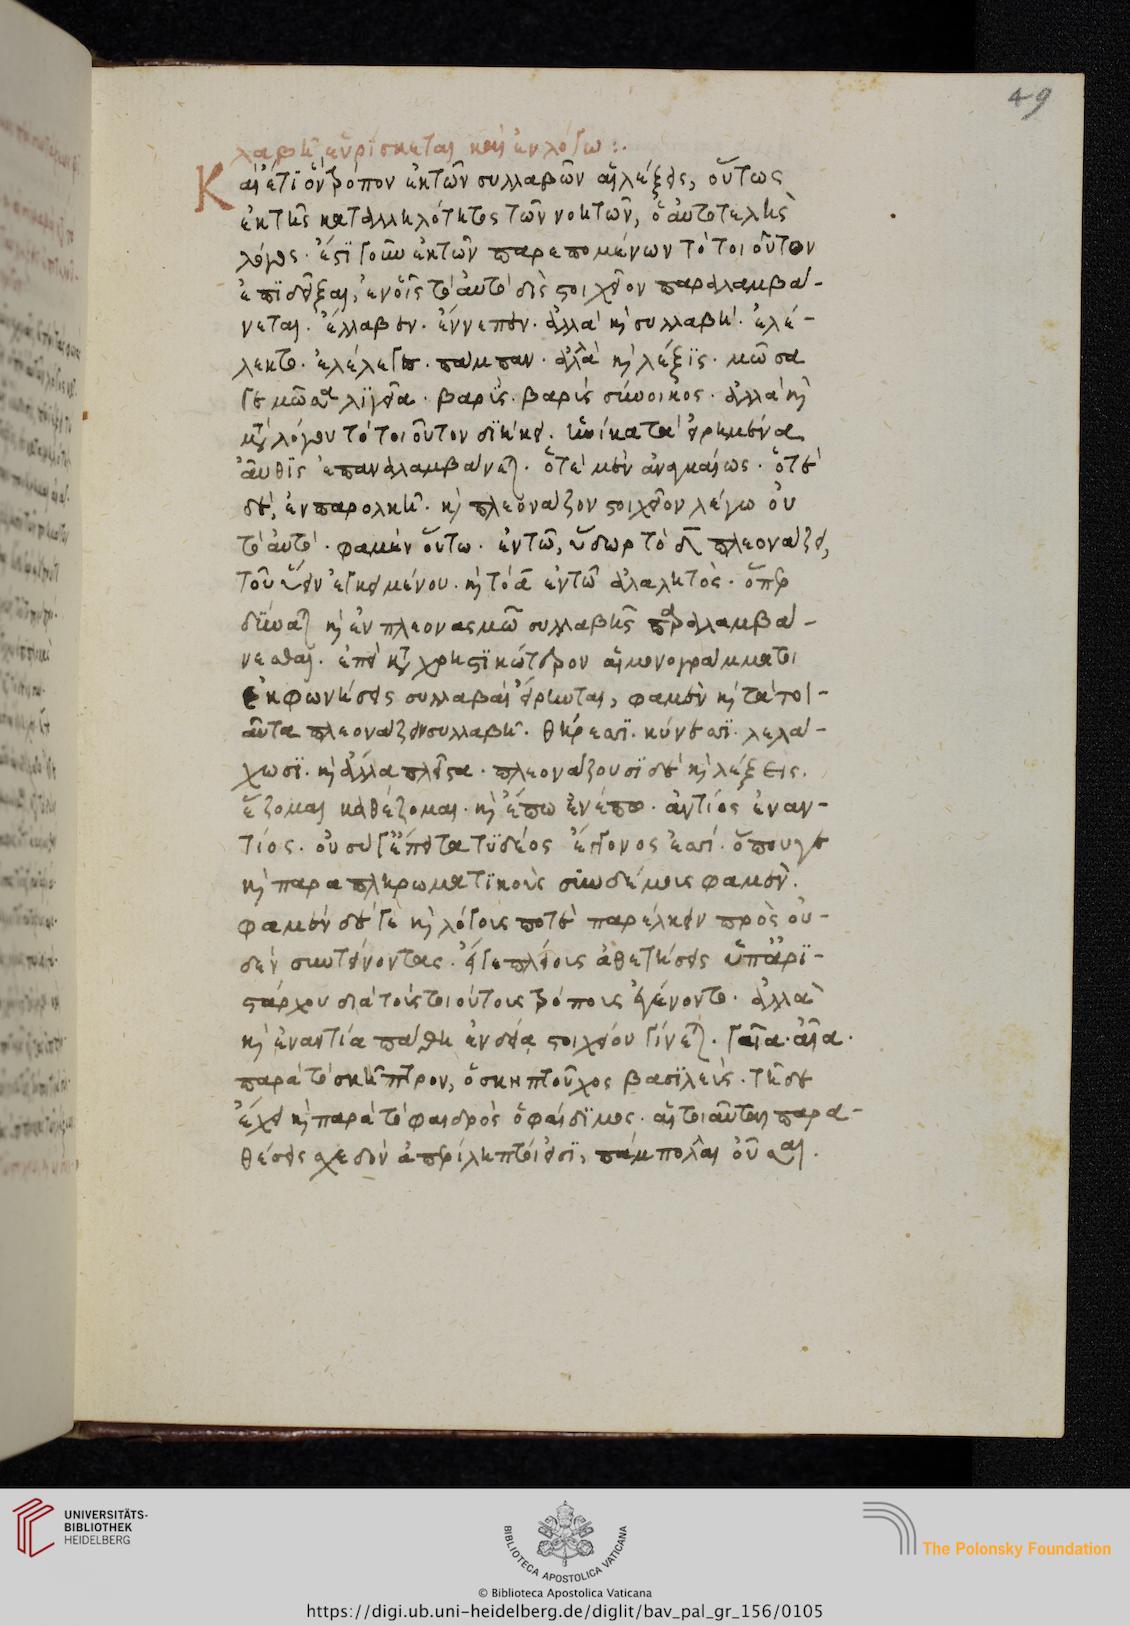 49
λαβῆ εὑρίσκεται καὶ ἐν λόγω :.
Καὶ ἔτι ὃν τρόπον ἐκ τῶν συλλαβῶν αἱ λέξεις, οὕτως
ἐκ τῆς καταλληλότητος τῶν νοητῶν, ὁ αὐτοτελὴς
λόγος. ἔστι γοῦν ἐκ τῶν παρεπομένων τὸ τοιοῦτον
ἐπιδεῖξαι, ἐν οἷς τὸ αὐτὸ δὶς στοιχεῖον παραλαμβά-
νεται. ἔλλαβεν. ἔννεπεν. ἀλλὰ κὶ συλλαβή. ἐλέ-
λεκτο. ἐλέλεγετο. πάμπαν. ἀλλὰ κὶ λέξις. μῶσα
γε μῶσα λίγεια. βαρὶς. βαρὺς σύνοικος. ἀλλὰ κὶ
κτ λόγου τὸ τοιοῦτον διήκει. ἡνίκα τὰ εἰρημένα
αὖθις ἐπαναλαμβάνεται. ὁτὲ μὲν ἀναγκαίως. ὁτὲ
δὲ, ἐν παρολκῆ. κὶ πλεονάζον στοιχεῖον λέγω οὐ
τὸ αὐτό. φαμὲν οὕτω. ἐν τῶ, ὕδωρ τὸ δ πλεονάζει,
τοῦ ὕειν ἐγκειμένου. κὶ τὸ α ἐν τῶ ἀλαλητός. ὅπερ
δύναται κὶ ἐν πλεονασμῶ συλλαβῆς παραλαμβά-
νεσθαι. ἐπεὶ κτ χρηστικώτερον αἱ μονογράμματοι
ἐκφωνήσεις συλλαβαὶ εἴρηνται, φαμὲν κὶ τὰ τοι-
αῦτα πλεονάζειν συλλαβῆ. θήρεσσι. κύνεσσι. λελά-
χωσι. κὶ ἄλλα πλεῖστα. πλεονάζουσι δὲ κὶ λέξεις.
ἕζομαι καθέζομαι. κὶ ἔπω ἐνέπω. ἀντίος ἐναν-
τίος. οὐ σύ γ' ἔπειτα τυδέος ἔκγονος ἐσσί. ὅπου γε
κὶ παραπληρωματικοὺς συνδέσμους φαμέν.
φαμὲν δέ γε κὶ λόγους ποτὲ παρέλκειν πρὸς οὐ-
δὲν συντείνοντας. εἴγε πλείους ἀθετήσεις ὑπ' ἀρι-
στάρχου διὰ τοὺς τοιούτους τρόπους ἐγένοντο. ἀλλὰ
κὶ ἐναντία πάθη ἐνδεία στοιχείου γίνεται. γαῖα. αἶα.
παρὰ τὸ σκῆπτρον, ὁ σκηπτοῦχος βασιλεύς. τῆδε
ἔχει κὶ παρὰ τὸ φαιδρὸς ὁ φαίδιμος. αἱ τοιαῦται παρα-
θέσεις σχεδὸν ἀπερίληπτοί εἰσι, πάμπολλαι οὖσαι.
UNIVERSITÄTS-
BIBLIOTHEK
HEIDELBERG
BIBLIOTECA APOSTOLICA VATICANA
The Polonsky Foundation
© Biblioteca Apostolica Vaticana
https://digi.ub.uni-heidelberg.de/diglit/bav_pal_gr_156/0105